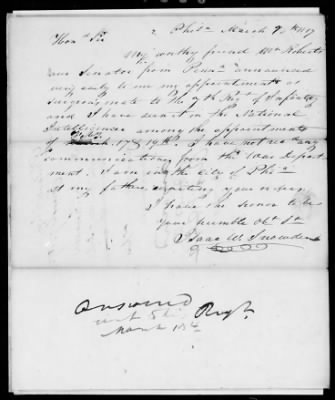 Phila March 9th 1817
Hond Sir
My worthy friend Mr Roberts
our Senator from Penna announced
to me my appointment as
Surgeons mate to the 7th Regt of Infantry
and I have seen in the National
Intelligencer among the appointments
of 17 & 19th. I have not recd any
communication from the War Depart
ment. I am in the City of Phila
at my fathers awaiting your orders.
I have the honor to be
your humble Obt St
Isaac W. Snowden
Answered
March